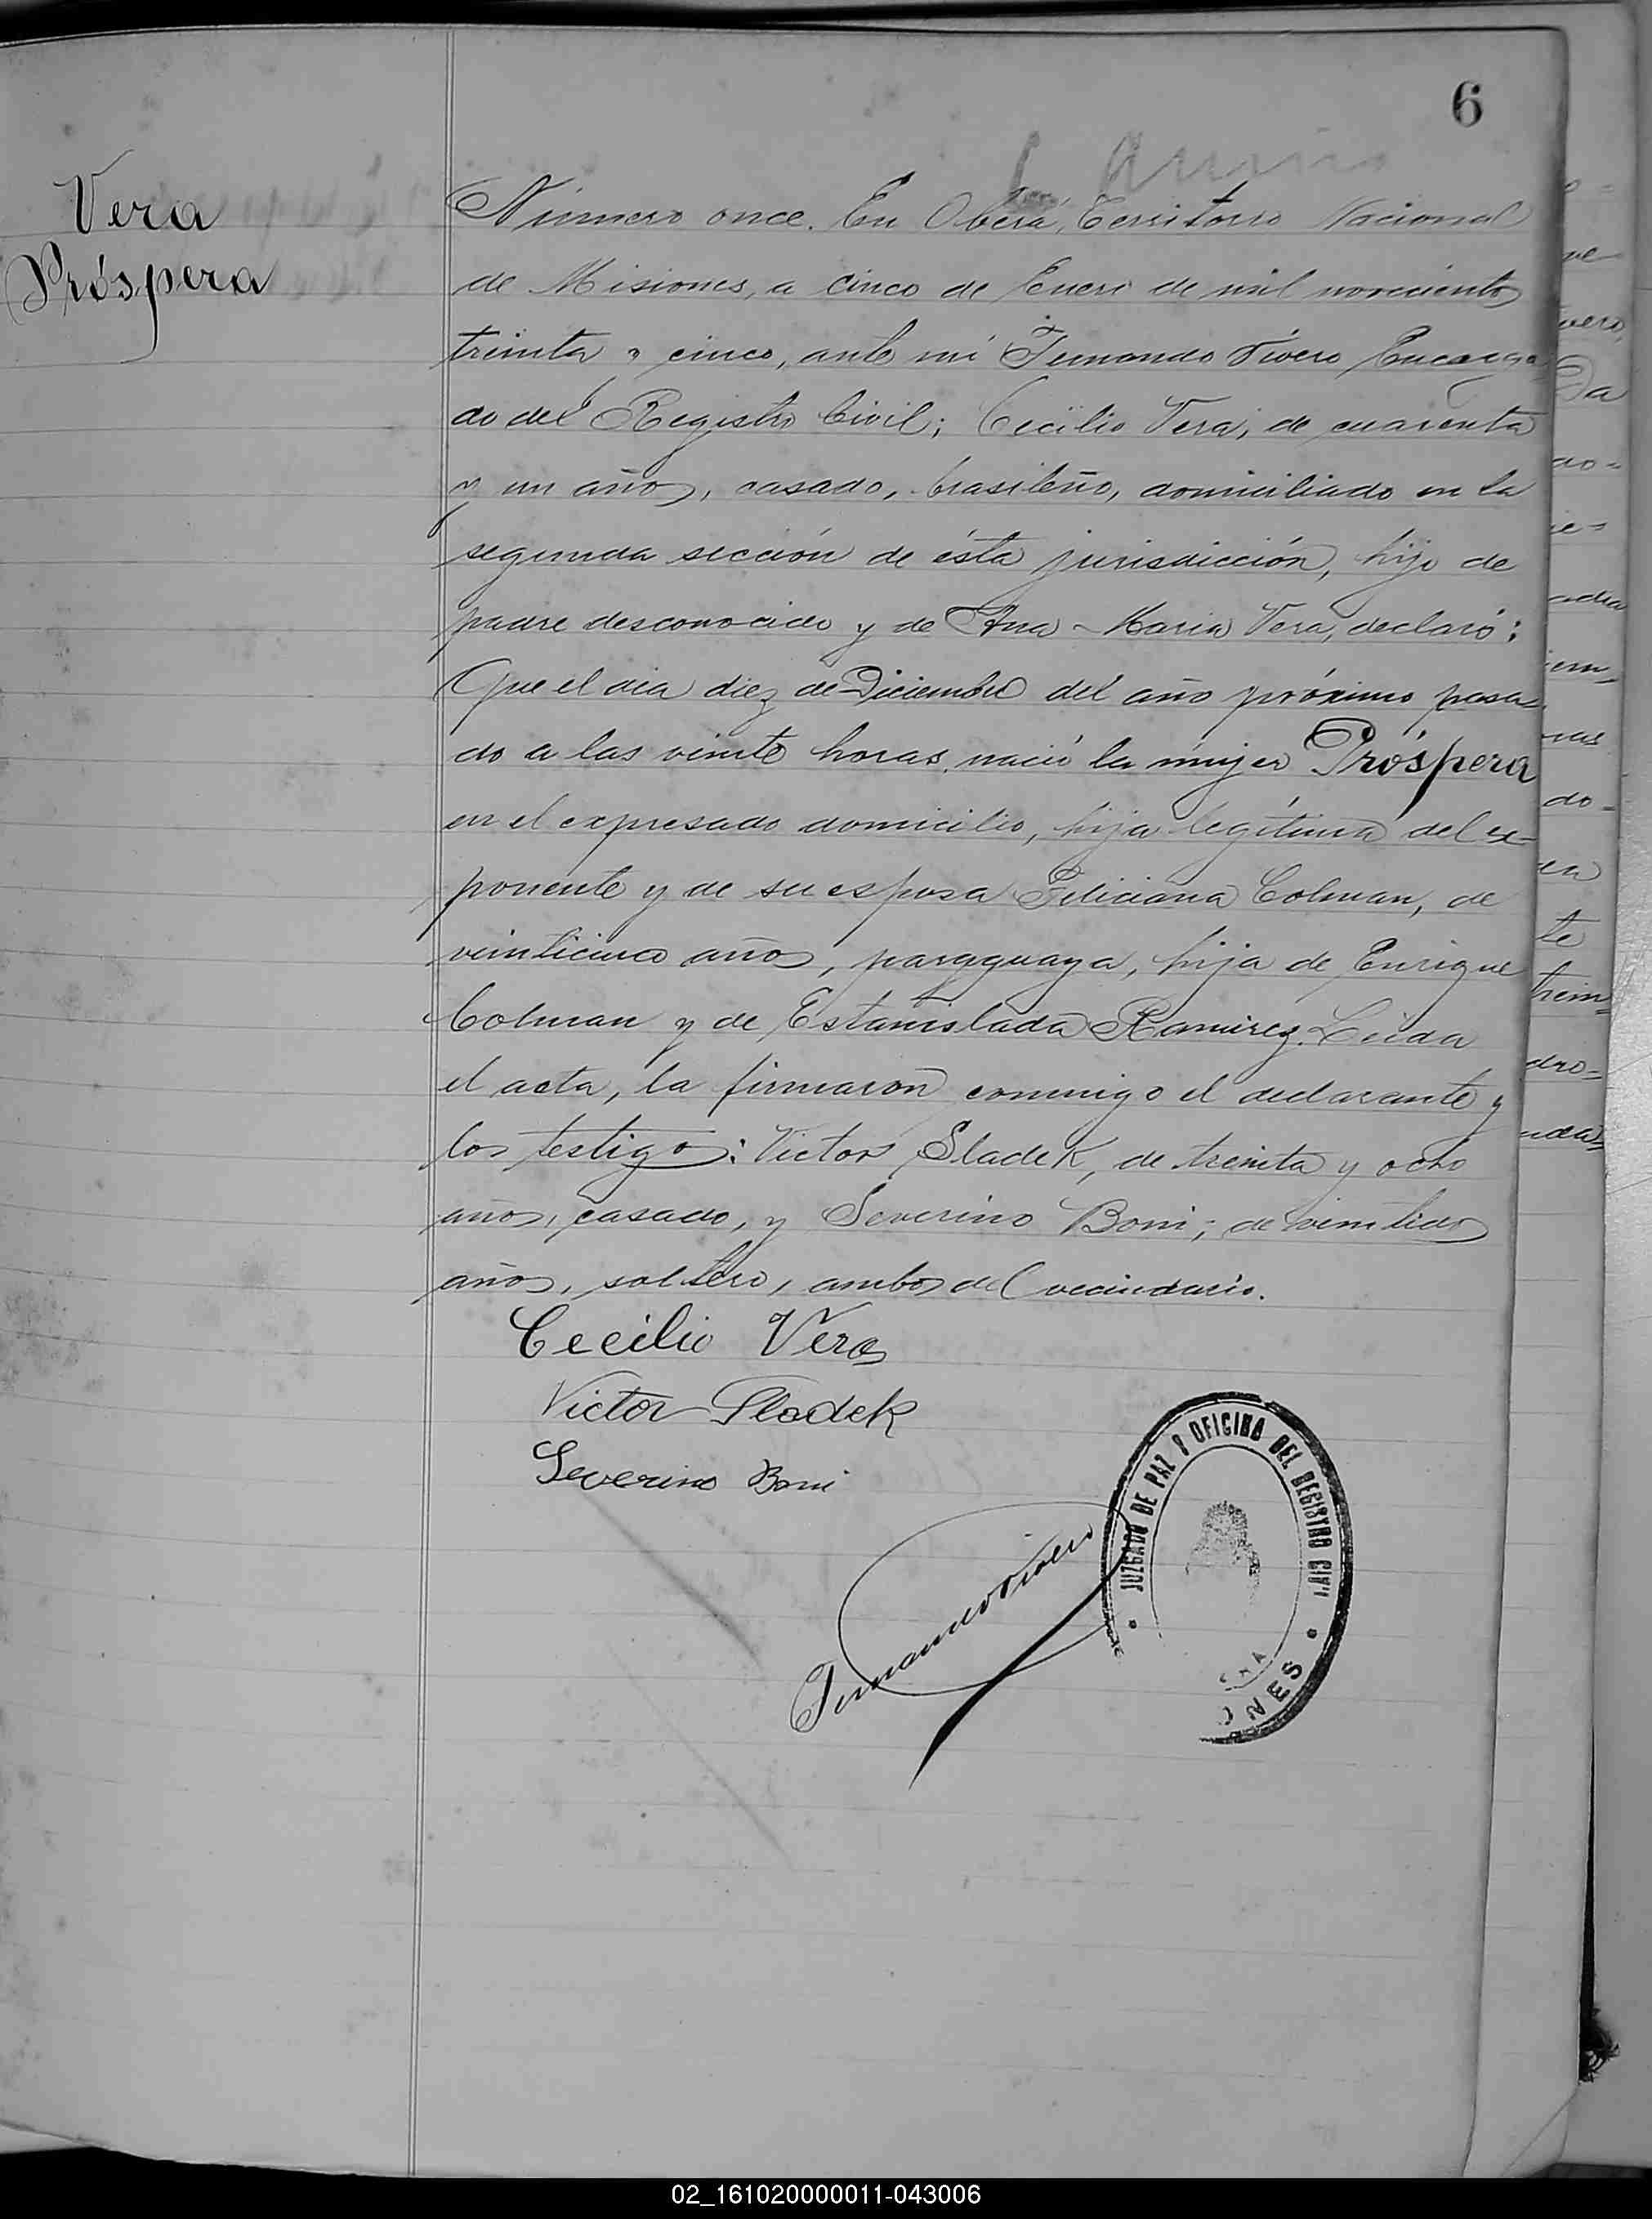 6
Vera
Próspera
Número once. En Oberá, Territorio Nacional
de Misiones, a cinco de Enero de mil novecientos
treinta y cinco, ante mí Fernando Vivero Encarga-
do del Registro Civil; Cecilio Vera, de cuarenta
y un años, casado, brasileño, domiciliado en la
segunda sección de ésta jurisdicción, hijo de
padre desconocido y de Ana María Vera, declaró:
Que el día diez de Diciembre del año próximo pasa-
do a las veinte horas, nació la mujer Próspera
en el expresado domicilio, hija legítima del ex-
ponente y de su esposa Feliciana Colman, de
veinticinco años, paraguaya, hija de Enrique
Colman y de Estanislada Ramirez. Leída
el acta, la firmaron conmigo el declarante y
los testigos: Victor Sladek, de treinta y ocho
años, casado, y Severino Boni; de veintidos
años, soltero, ambos del vecindario.
Cecilio Vera
Victor Sladek
Severino Boni
Fernando Vivero
JUZGADO DE PAZ Y OFICINA DEL REGISTRO CIVI
NES
02_161020000011-043006